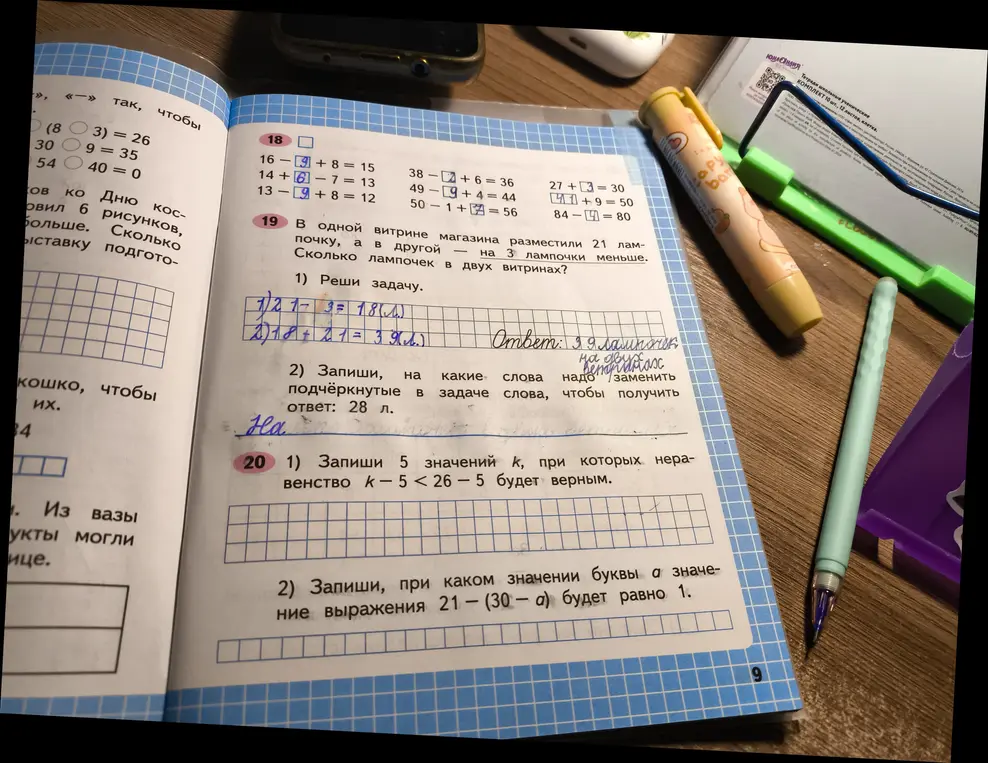 », «—» так, чтобы
(8 ○ 3) = 26
30 ○ 9 = 35
54 ○ 40 = 0
ко Дню кос-
6 рисунков,
больше. Сколько
подгото-
чтобы
их.
34
Из вазы
могли
18
16 − 9 + 8 = 15
14 + 6 − 7 = 13
13 − 9 + 8 = 12
38 − 2 + 6 = 36
49 − 9 + 4 = 44
50 − 1 + 7 = 56
27 + 3 = 30
41 + 9 = 50
84 − 4 = 80
19
В одной витрине магазина разместили 21 лам-
почку, а в другой — на 3 лампочки меньше.
Сколько лампочек в двух витринах?
1) Реши задачу.
1) 21 − 3 = 18 (л.)
2) 18 + 21 = 39 (л.)
Ответ: 39 лампочек
на двух
ветринах
2) Запиши, на какие слова надо заменить
подчёркнутые в задаче слова, чтобы получить
ответ: 28 л.
На
20 1) Запиши 5 значений k, при которых нера-
венство k − 5 < 26 − 5 будет верным.
2) Запиши, при каком значении буквы a значе-
ние выражения 21 − (30 − a) будет равно 1.
9
Тетради школьные ученические
КОМПЛЕКТ 10 шт., 12 листов, клетка.